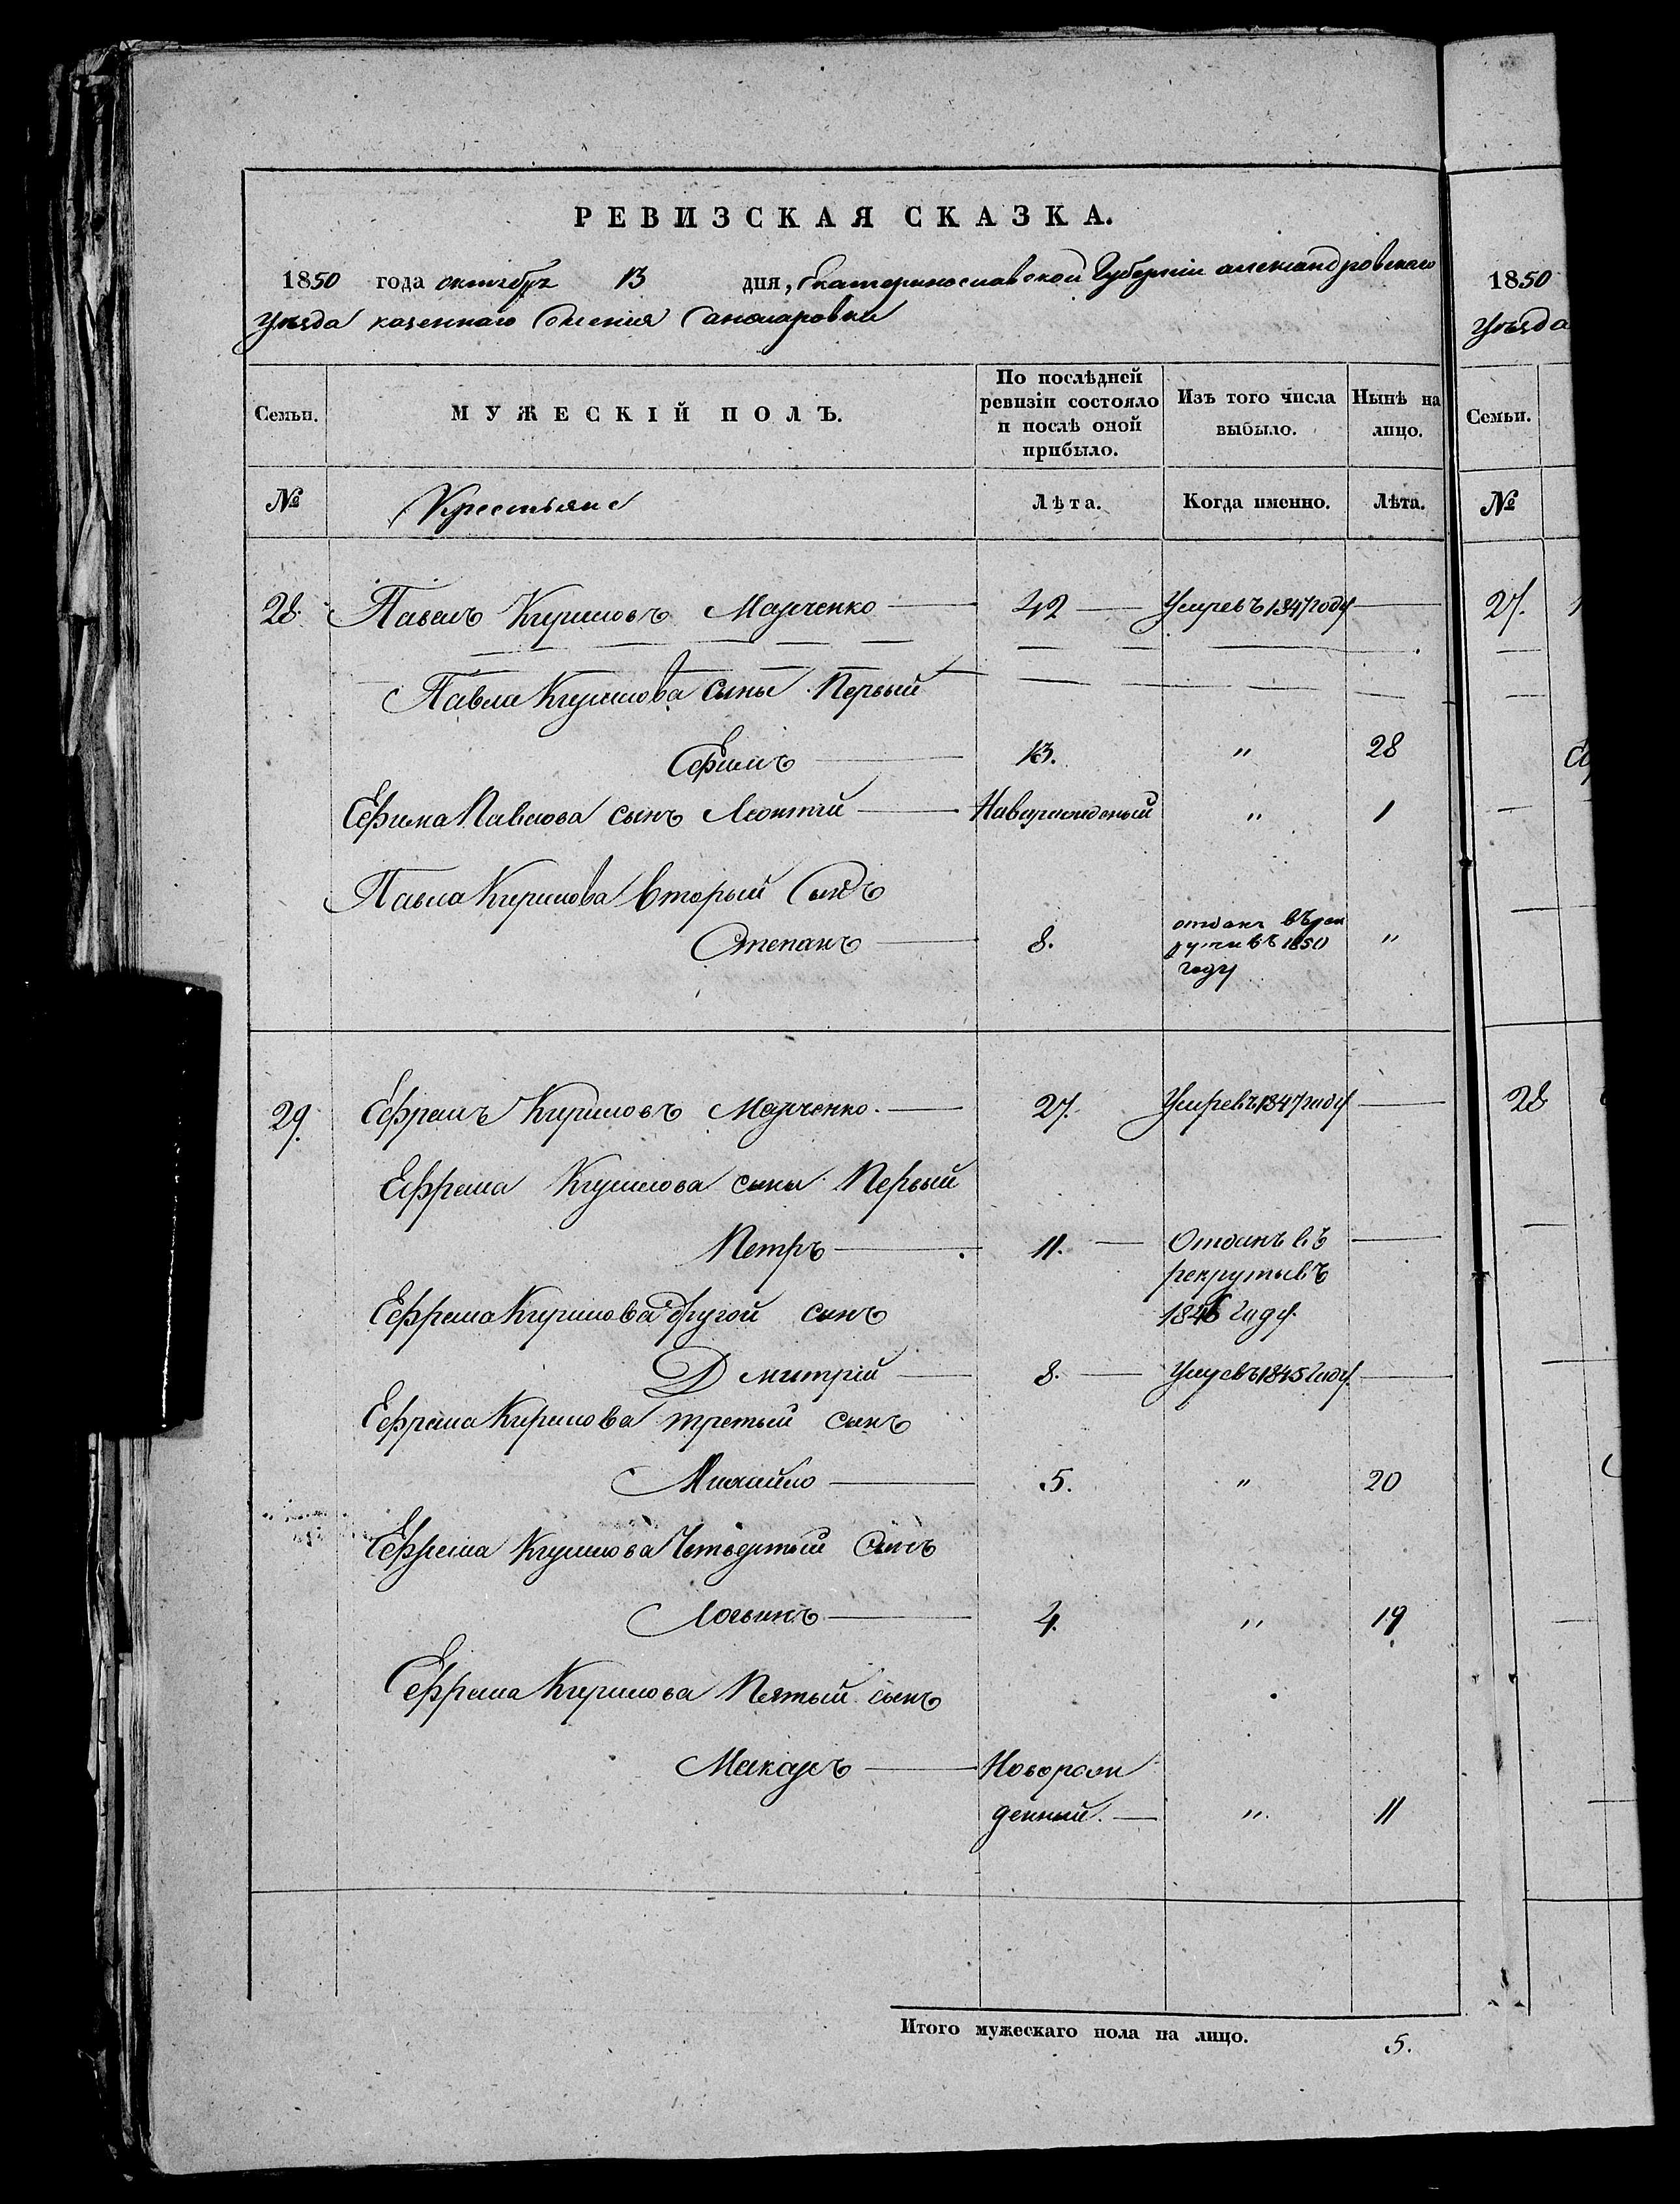 РЕВИЗСКАЯ СКАЗКА.
1850 года октября 13 дня, Екатеринославской Губернии александровского
уезда казенного селения
Семьи. МУЖЕСКІЙ ПОЛЪ. По послѣдней ревизіи состояло и послѣ оной прибыло. Изъ того числа выбыло. Нынѣ на лицо.
№ Крестьяне Лѣта. Когда именно. Лѣта.
28. Павелъ Кириловъ Марченко 42 Умревъ 1847 году
Павла Кирилова сыны Первый
Ефимъ 13. " 28
Ефима Павлова сынъ Леонтий Наворожденый " 1
Павла Кирилова Вторый Сынъ
Степанъ 8. отдан въ рек
руты въ 1850 "
году
29. Ефремъ Кириловъ Марченко. 27. Умревъ 1847 году
Ефрема Кирилова сыны Первый
Петръ 11. Отданъ въ
рекруты въ
Ефрема Кирилова другой сынъ 1846 году.
Дмитрій 8. Умревъ 1845 году.
Ефрема Кирилова третый сынъ
Михайло 5. " 20
Ефрема Кирилова Четвертый Сынъ
Логвинъ 4. " 19
Ефрема Кирилова Пятый сынъ
Макаръ Новорож
денный. " 11
Итого мужескаго пола на лицо. 5.
1850
уъзда
Семьи.
№
27.
28